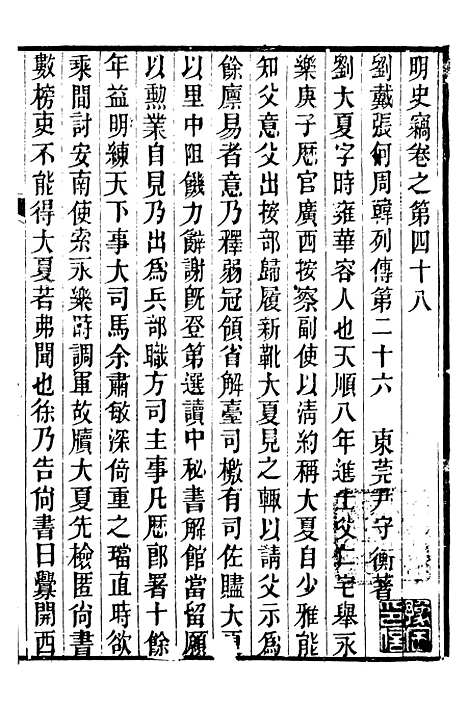 明史竊卷之第四十八
劉戴張何周韓列傳第二十六 東莞尹守衡著
劉大夏字時雍華容人也天順八年進士父仁宅舉永
樂庚子歷官廣西按察副使以清約稱大夏自少雅能
知父意父出按部歸履新靴大夏見之輒以請父示為
餘廪易者意乃釋弱冠領省解臺司檄有司佐贐大夏
以里中阻饑力辭謝旣登第選讀中秘書解館當留願
以勲業自見乃出為兵部職方司主事凡歷郎署十餘
年益明練天下事大司馬余肅敏深倚重之璫直時欲
乘間討安南使索永樂時調軍故牘大夏先檢匿尙書
數榜吏不能得大夏若弗聞也徐乃告尙書曰釁開西